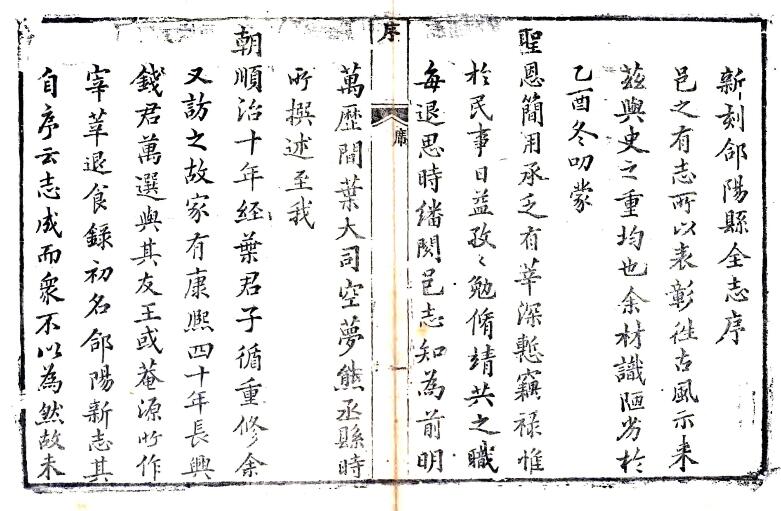 新刻郃陽縣全志序
邑之有志所以表彰徃古風示来
茲與史之重均也余材識陋劣於
乙酉冬叨蒙
聖恩簡用承乏有莘深慙竊禄惟
於民事日益孜〻勉脩靖共之職
每退思時繙閱邑志知為前明
序
序
萬歷間葉大司空夢熊丞縣時
所撰述至我
朝順治十年經葉君子循重修余
又訪之故家有康熙四十年長興
錢君萬選與其友王或菴源所作
宰莘退食錄初名郃陽新志其
自序云志成而衆不以為然故未